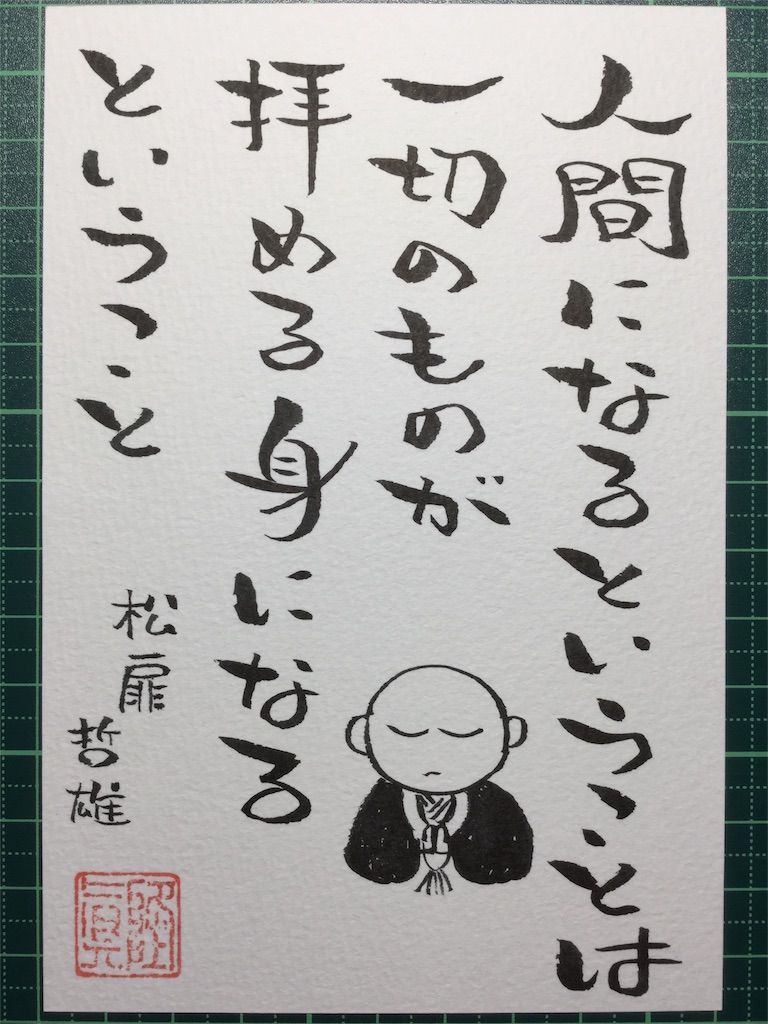 人間になるということは
一切のものが
拝める身になる
ということ
松扉
哲雄